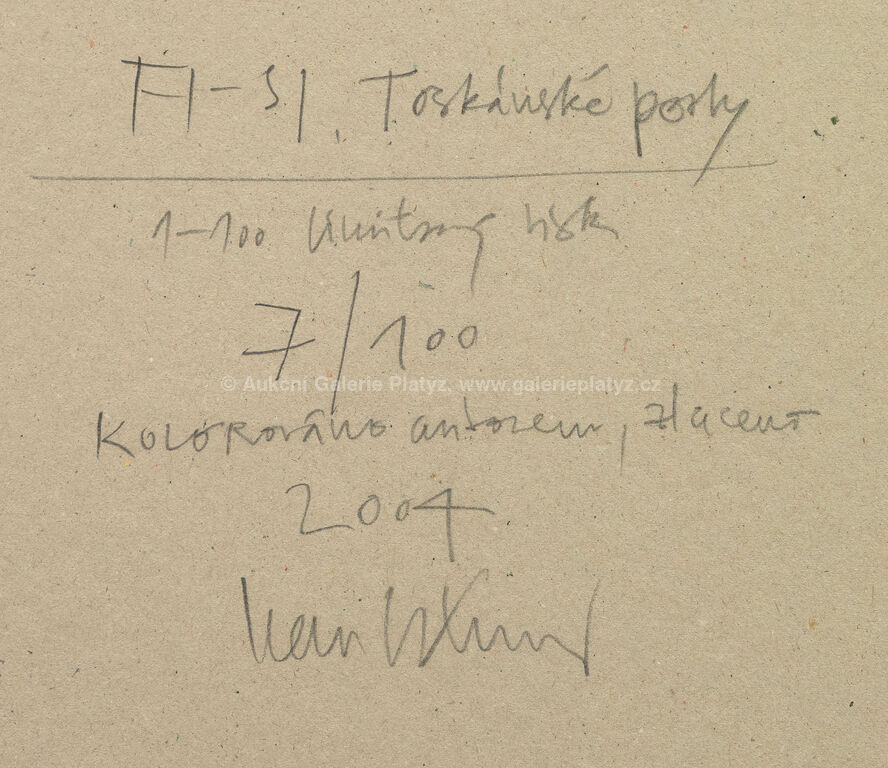 FI-SI, Toskánské posty
1-100 limitovaný tisk
7/100
© Aukční Galerie Platýz, www.galerieplatyz.cz
Kolorováno autorem, zlaceno
2004
Ivan